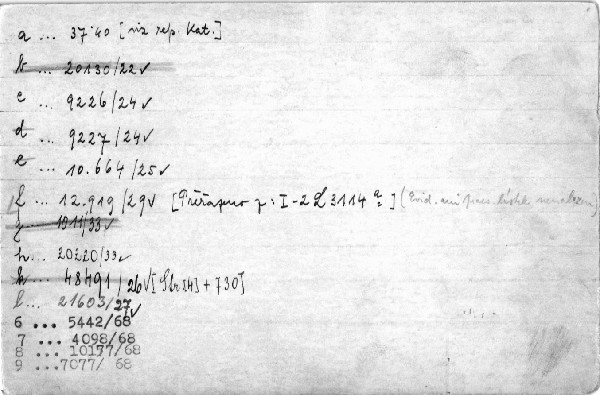 a ... 37·40 [viz rep. Kat.]
b ... 20130/22✓
c ... 9226/24✓
d ... 9227/24✓
e ... 10.664/25✓
f ... 12.919/29✓ [Přeřazeno z: I-2 L 3114 a] (Evid. ani nenalezeny
g ... 1011/33✓
h... 20220/33✓
k... 48491/26✓ + 730]
l... 21603/27✓
6 ... 5442/68
7 ... 4098/68
8 ... 10177/68
9 ...7077/ 68